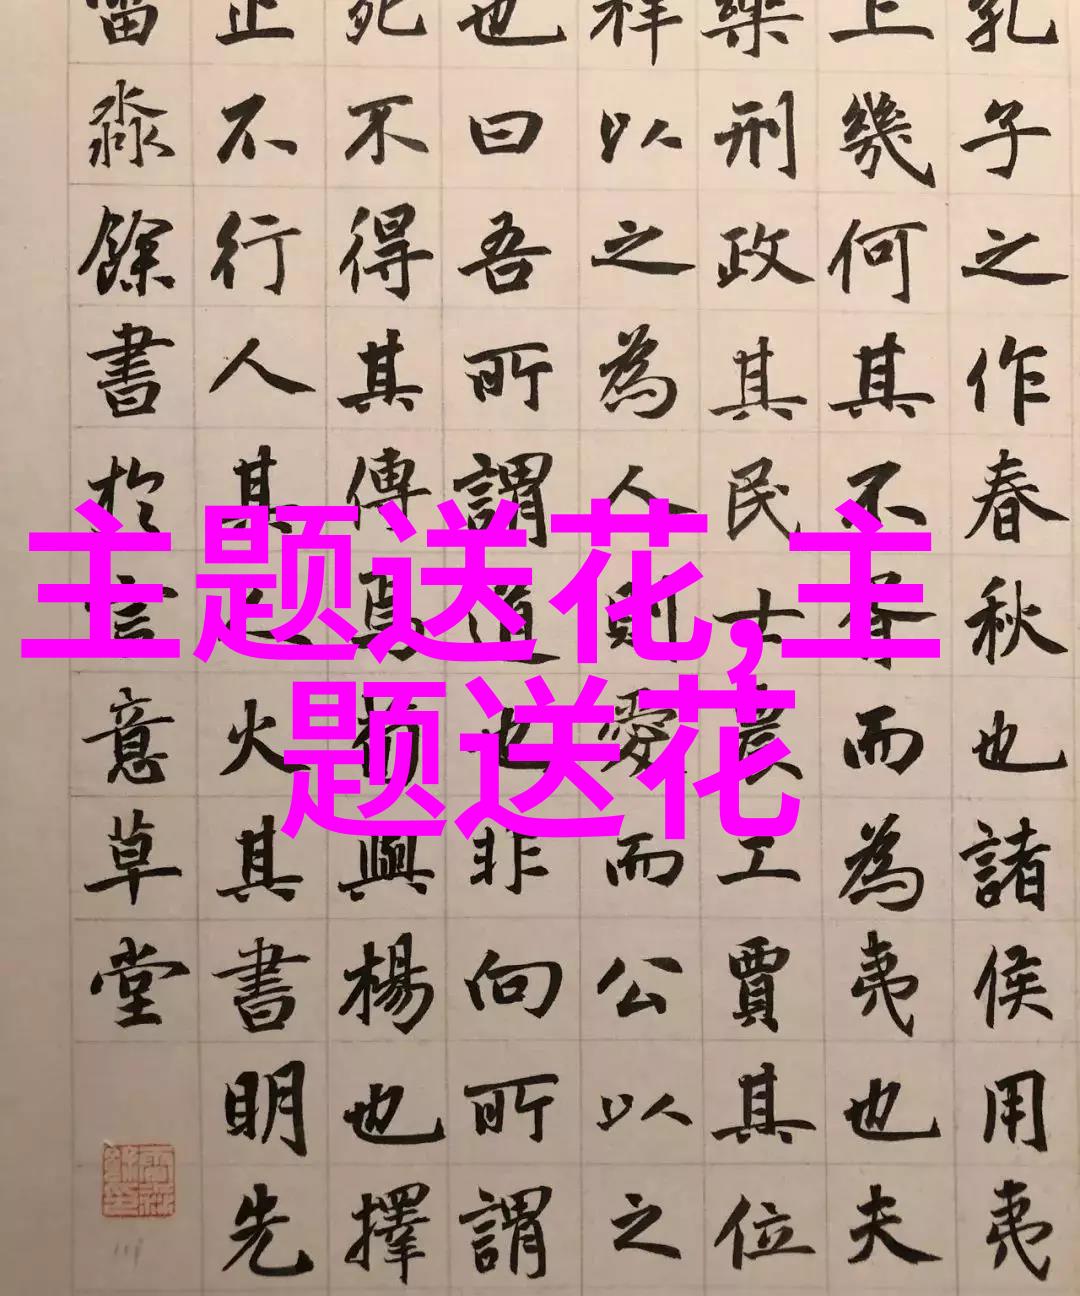 主题送花,主
题送花
孔子之作春秋也諸侯用夷
上幾何其不胥而為夷也夫
樂刑政其民士農工賈其位
祥以之為人則愛而公以之
也曰吾所謂道也非向所謂
死不得其傳焉荀與楊也擇
止不行人其人火其書明先
淼餘書於言意草堂